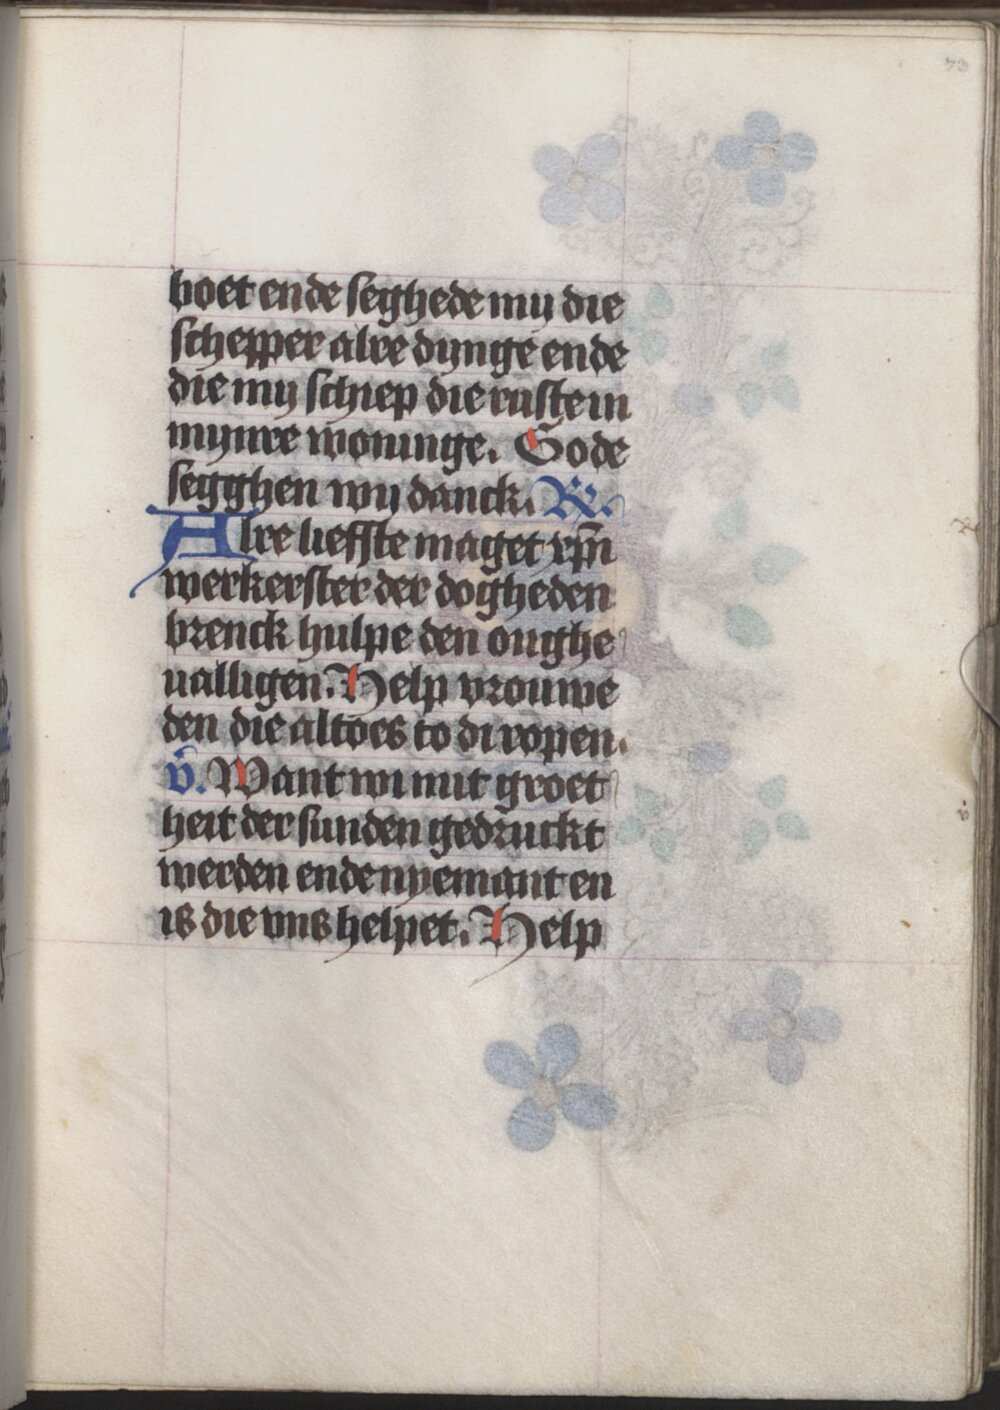 boet ende seghede my die
schepper alre dynge ende
die my schiep die ruste in
mynre woninge. Gode
segghen wy danck. R.
Alre liefste maget xpm̄
werkerster der dogheden
brenck hulpe den onghe
ualligen. Help vrouwe
den die altoes to di ropen.
v. Want wi mit groet
heit der sunden gedruckt
werden ende nyemant en
is die vns helpet. Help
73